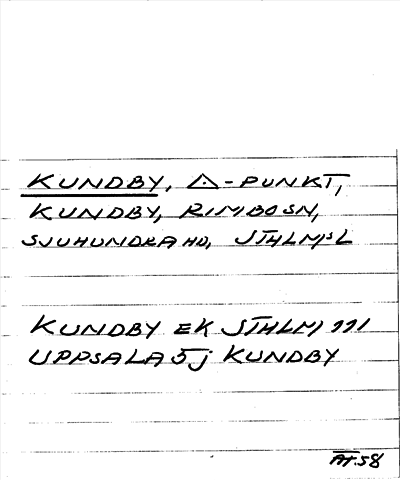 KUNDBY, △-PUNKT,
KUNDBY, RIMBO SN,
SJUHUNDRA HD, STHLMS L
KUNDBY EK STHLM 111
UPPSALA 5j KUNDBY
AT.58